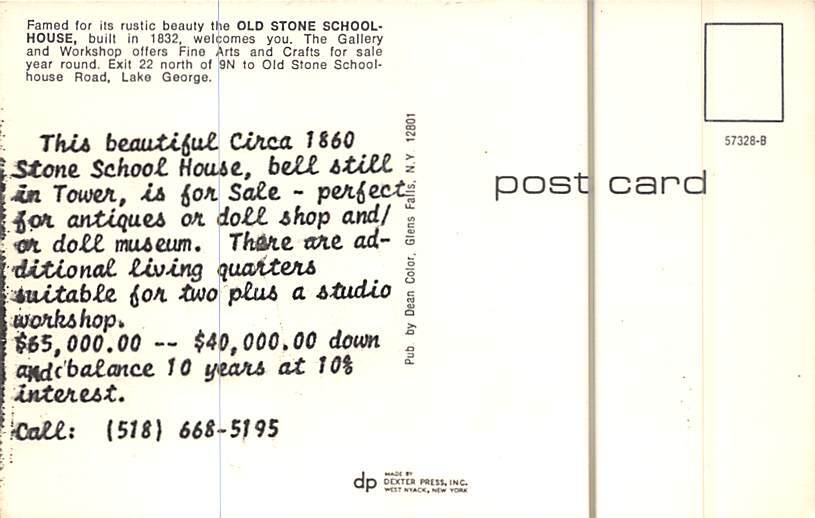 Famed for its rustic beauty the OLD STONE SCHOOL-
HOUSE, built in 1832, welcomes you. The Gallery
and Workshop offers Fine Arts and Crafts for sale
year round. Exit 22 north of 9N to Old Stone School-
house Road, Lake George.
This beautiful Circa 1860
Stone School House, bell still
in Tower, is for Sale - perfect
for antiques or doll shop and/
or doll museum. There are ad-
ditional living quarters
suitable for two plus a studio
workshop.
$65,000.00 -- $40,000.00 down
and balance 10 years at 10%
interest.
Call: (518) 668-5195
Pub. by Dean Color, Glens Falls, N.Y. 12801
post card
57328-B
dp
MADE BY
DEXTER PRESS, INC.
WEST NYACK, NEW YORK